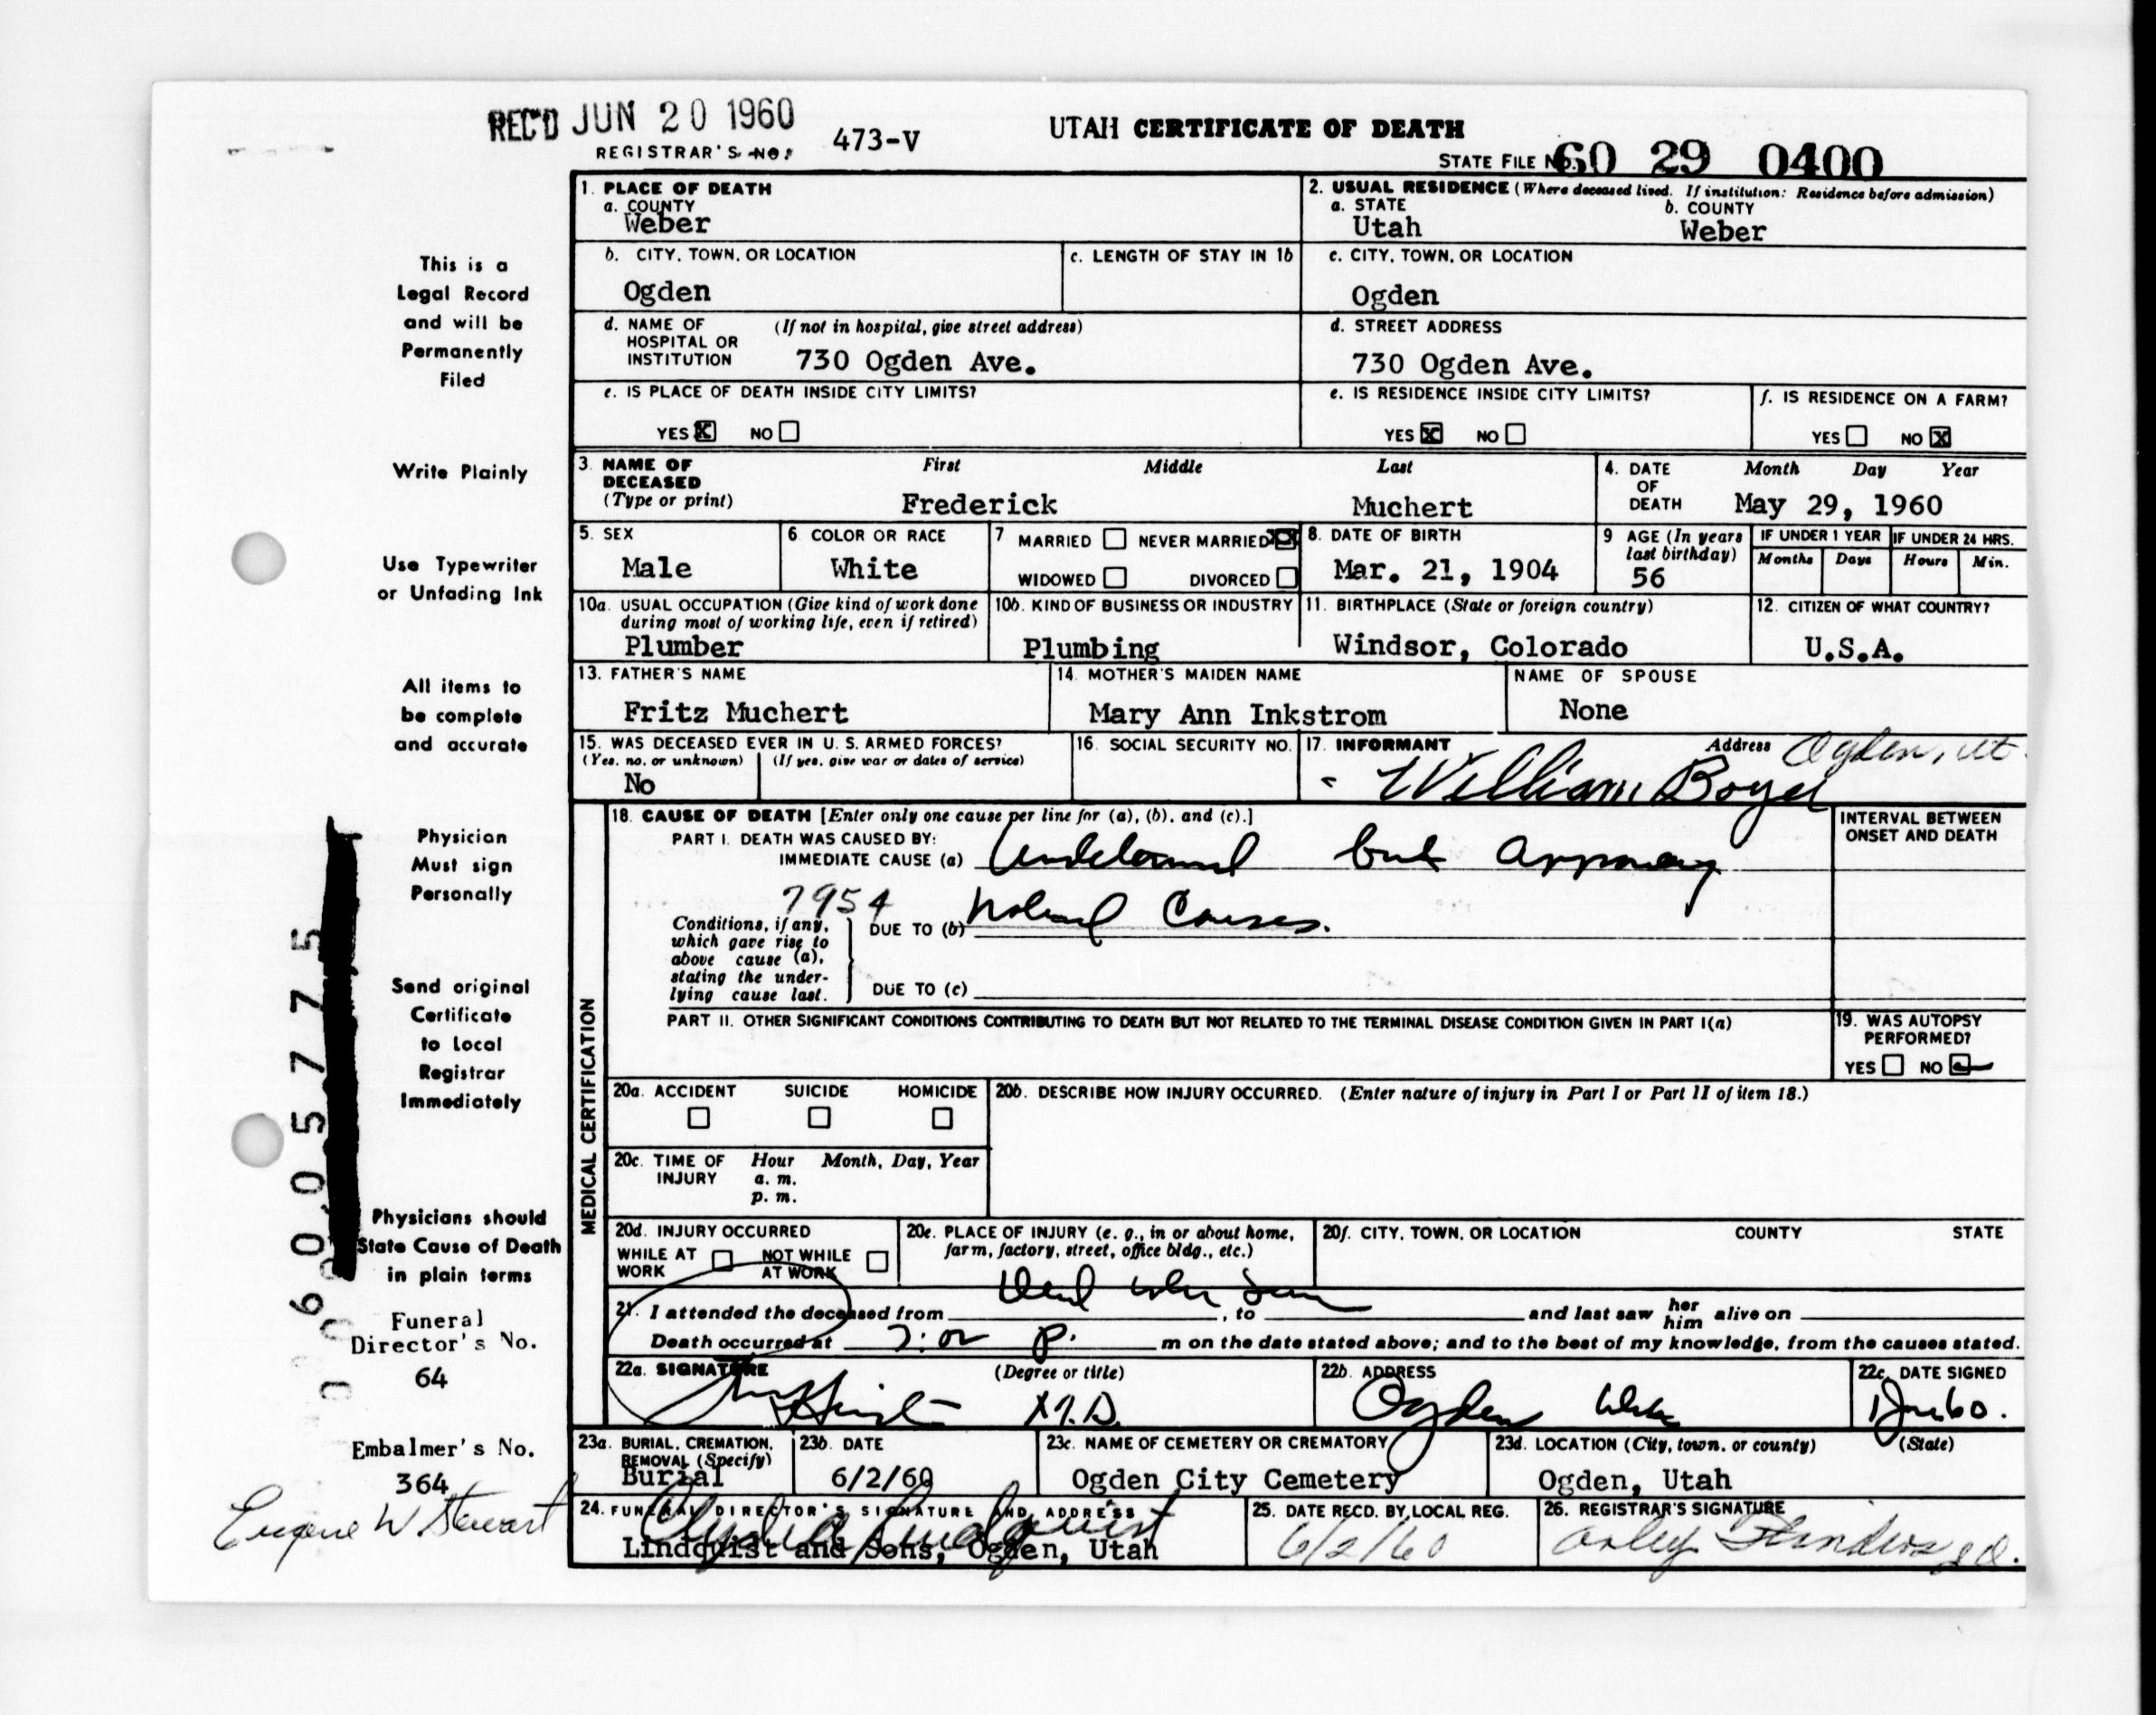 REC'D JUN 20 1960
REGISTRAR'S NO. 473-V
UTAH CERTIFICATE OF DEATH
STATE FILE NO. 60 29 0400
This is a
Legal Record
and will be
Permanently
Filed
Write Plainly
Use Typewriter
or Unfading Ink
All items to
be complete
and accurate
Physician
Must sign
Personally
Send original
Certificate
to Local
Registrar
Immediately
Physicians should
State Cause of Death
in plain terms
Funeral
Director's No.
64
Embalmer's No.
364
Eugene W Stewart
006005775
1. PLACE OF DEATH
a. COUNTY
Weber
b. CITY, TOWN, OR LOCATION
Ogden
c. LENGTH OF STAY IN 1b
d. NAME OF HOSPITAL OR INSTITUTION (If not in hospital, give street address)
730 Ogden Ave.
e. IS PLACE OF DEATH INSIDE CITY LIMITS?
YES X NO
2. USUAL RESIDENCE (Where deceased lived. If institution: Residence before admission)
a. STATE
Utah
b. COUNTY
Weber
c. CITY, TOWN, OR LOCATION
Ogden
d. STREET ADDRESS
730 Ogden Ave.
e. IS RESIDENCE INSIDE CITY LIMITS?
YES X NO
f. IS RESIDENCE ON A FARM?
YES NO X
3. NAME OF DECEASED (Type or print)
First Middle Last
Frederick Muchert
4. DATE OF DEATH
Month Day Year
May 29, 1960
5. SEX
Male
6. COLOR OR RACE
White
7. MARRIED NEVER MARRIED X
WIDOWED DIVORCED
8. DATE OF BIRTH
Mar. 21, 1904
9. AGE (In years last birthday)
56
IF UNDER 1 YEAR
Months Days
IF UNDER 24 HRS.
Hours Min.
10a. USUAL OCCUPATION (Give kind of work done during most of working life, even if retired)
Plumber
10b. KIND OF BUSINESS OR INDUSTRY
Plumbing
11. BIRTHPLACE (State or foreign country)
Windsor, Colorado
12. CITIZEN OF WHAT COUNTRY?
U.S.A.
13. FATHER'S NAME
Fritz Muchert
14. MOTHER'S MAIDEN NAME
Mary Ann Inkstrom
NAME OF SPOUSE
None
15. WAS DECEASED EVER IN U. S. ARMED FORCES?
(Yes, no, or unknown) (If yes, give war or dates of service)
No
16. SOCIAL SECURITY NO.
17. INFORMANT Address
William Boyer Ogden, Ut
MEDICAL CERTIFICATION
18. CAUSE OF DEATH [Enter only one cause per line for (a), (b), and (c).]
PART I. DEATH WAS CAUSED BY:
IMMEDIATE CAUSE (a) but
7954
Conditions, if any, which gave rise to above cause (a), stating the underlying cause last.
DUE TO (b) Causes.
DUE TO (c)
INTERVAL BETWEEN ONSET AND DEATH
PART II. OTHER SIGNIFICANT CONDITIONS CONTRIBUTING TO DEATH BUT NOT RELATED TO THE TERMINAL DISEASE CONDITION GIVEN IN PART I(a)
19. WAS AUTOPSY PERFORMED?
YES NO
20a. ACCIDENT SUICIDE HOMICIDE
20b. DESCRIBE HOW INJURY OCCURRED. (Enter nature of injury in Part I or Part II of item 18.)
20c. TIME OF INJURY Hour Month, Day, Year
a. m.
p. m.
20d. INJURY OCCURRED
WHILE AT WORK NOT WHILE AT WORK
20e. PLACE OF INJURY (e. g., in or about home, farm, factory, street, office bldg., etc.)
20f. CITY, TOWN, OR LOCATION COUNTY STATE
21. I attended the deceased from , to and last saw her him alive on
Death occurred at p. m on the date stated above; and to the best of my knowledge, from the causes stated.
22a. SIGNATURE (Degree or title)
M.D.
22b. ADDRESS
Ogden
22c. DATE SIGNED
23a. BURIAL, CREMATION, REMOVAL (Specify)
Burial
23b. DATE
6/2/60
23c. NAME OF CEMETERY OR CREMATORY
Ogden City Cemetery
23d. LOCATION (City, town, or county) (State)
Ogden, Utah
24. FUNERAL DIRECTOR'S SIGNATURE AND ADDRESS
Lindquist and Sons, Ogden, Utah
25. DATE RECD. BY LOCAL REG.
6/2/60
26. REGISTRAR'S SIGNATURE